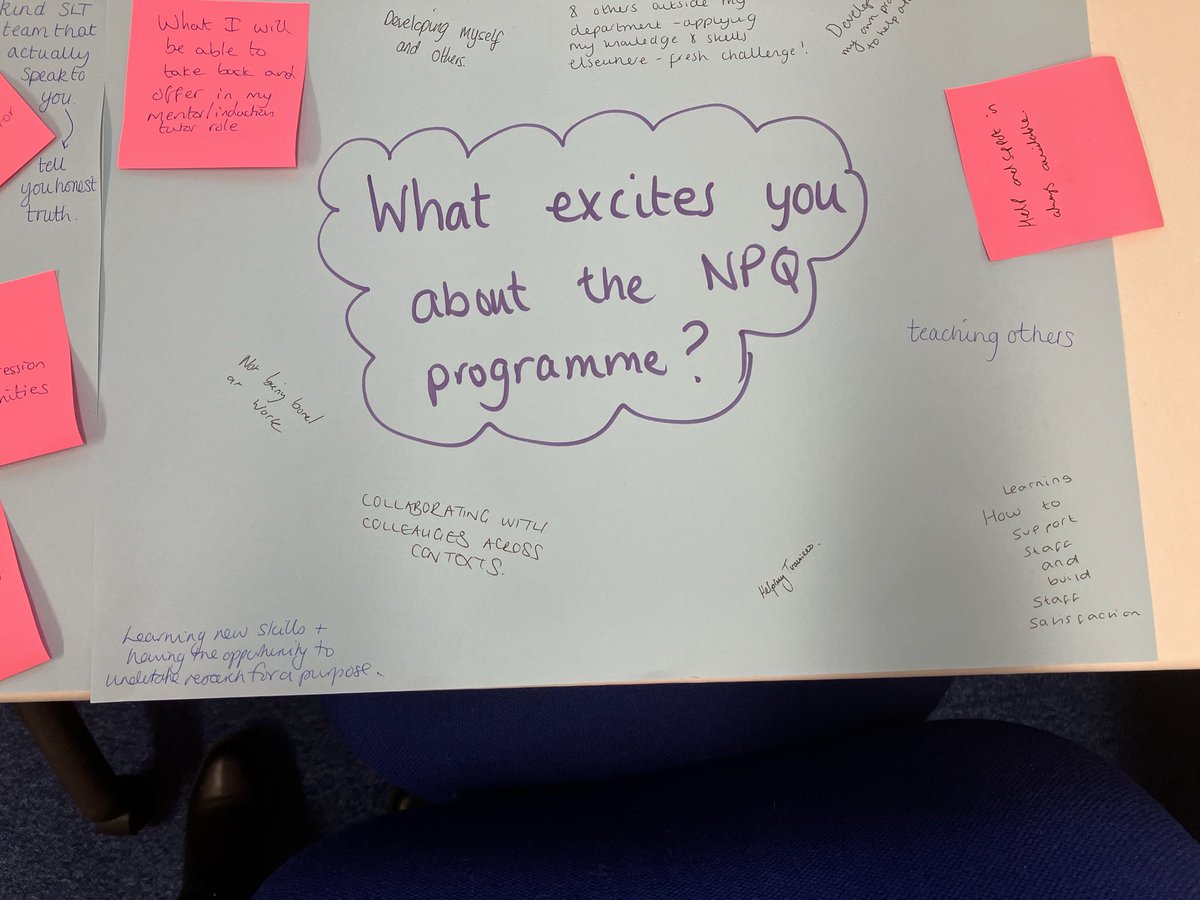 kind SLT
team that
actually
speak to
you.
tell
you honest
truth.
What I will
be able to
take back and
offer in my
mentor/induction
tutor role
Developing myself
and others.
& others outside my
department - applying
my knowledge & skills
elsewhere - fresh challenge!
my own
to help
Help and support is
always available.
What excites you
about the NPQ
programme?
teaching others
Not being bored
at work
COLLABORATING WITH
COLLEAUGES ACROSS
CONTEXTS.
Helping Trainees.
Learning
How to
support
staff
and
build
staff
satisfaction
Learning new skills +
having the opportunity to
undertake research for a purpose.